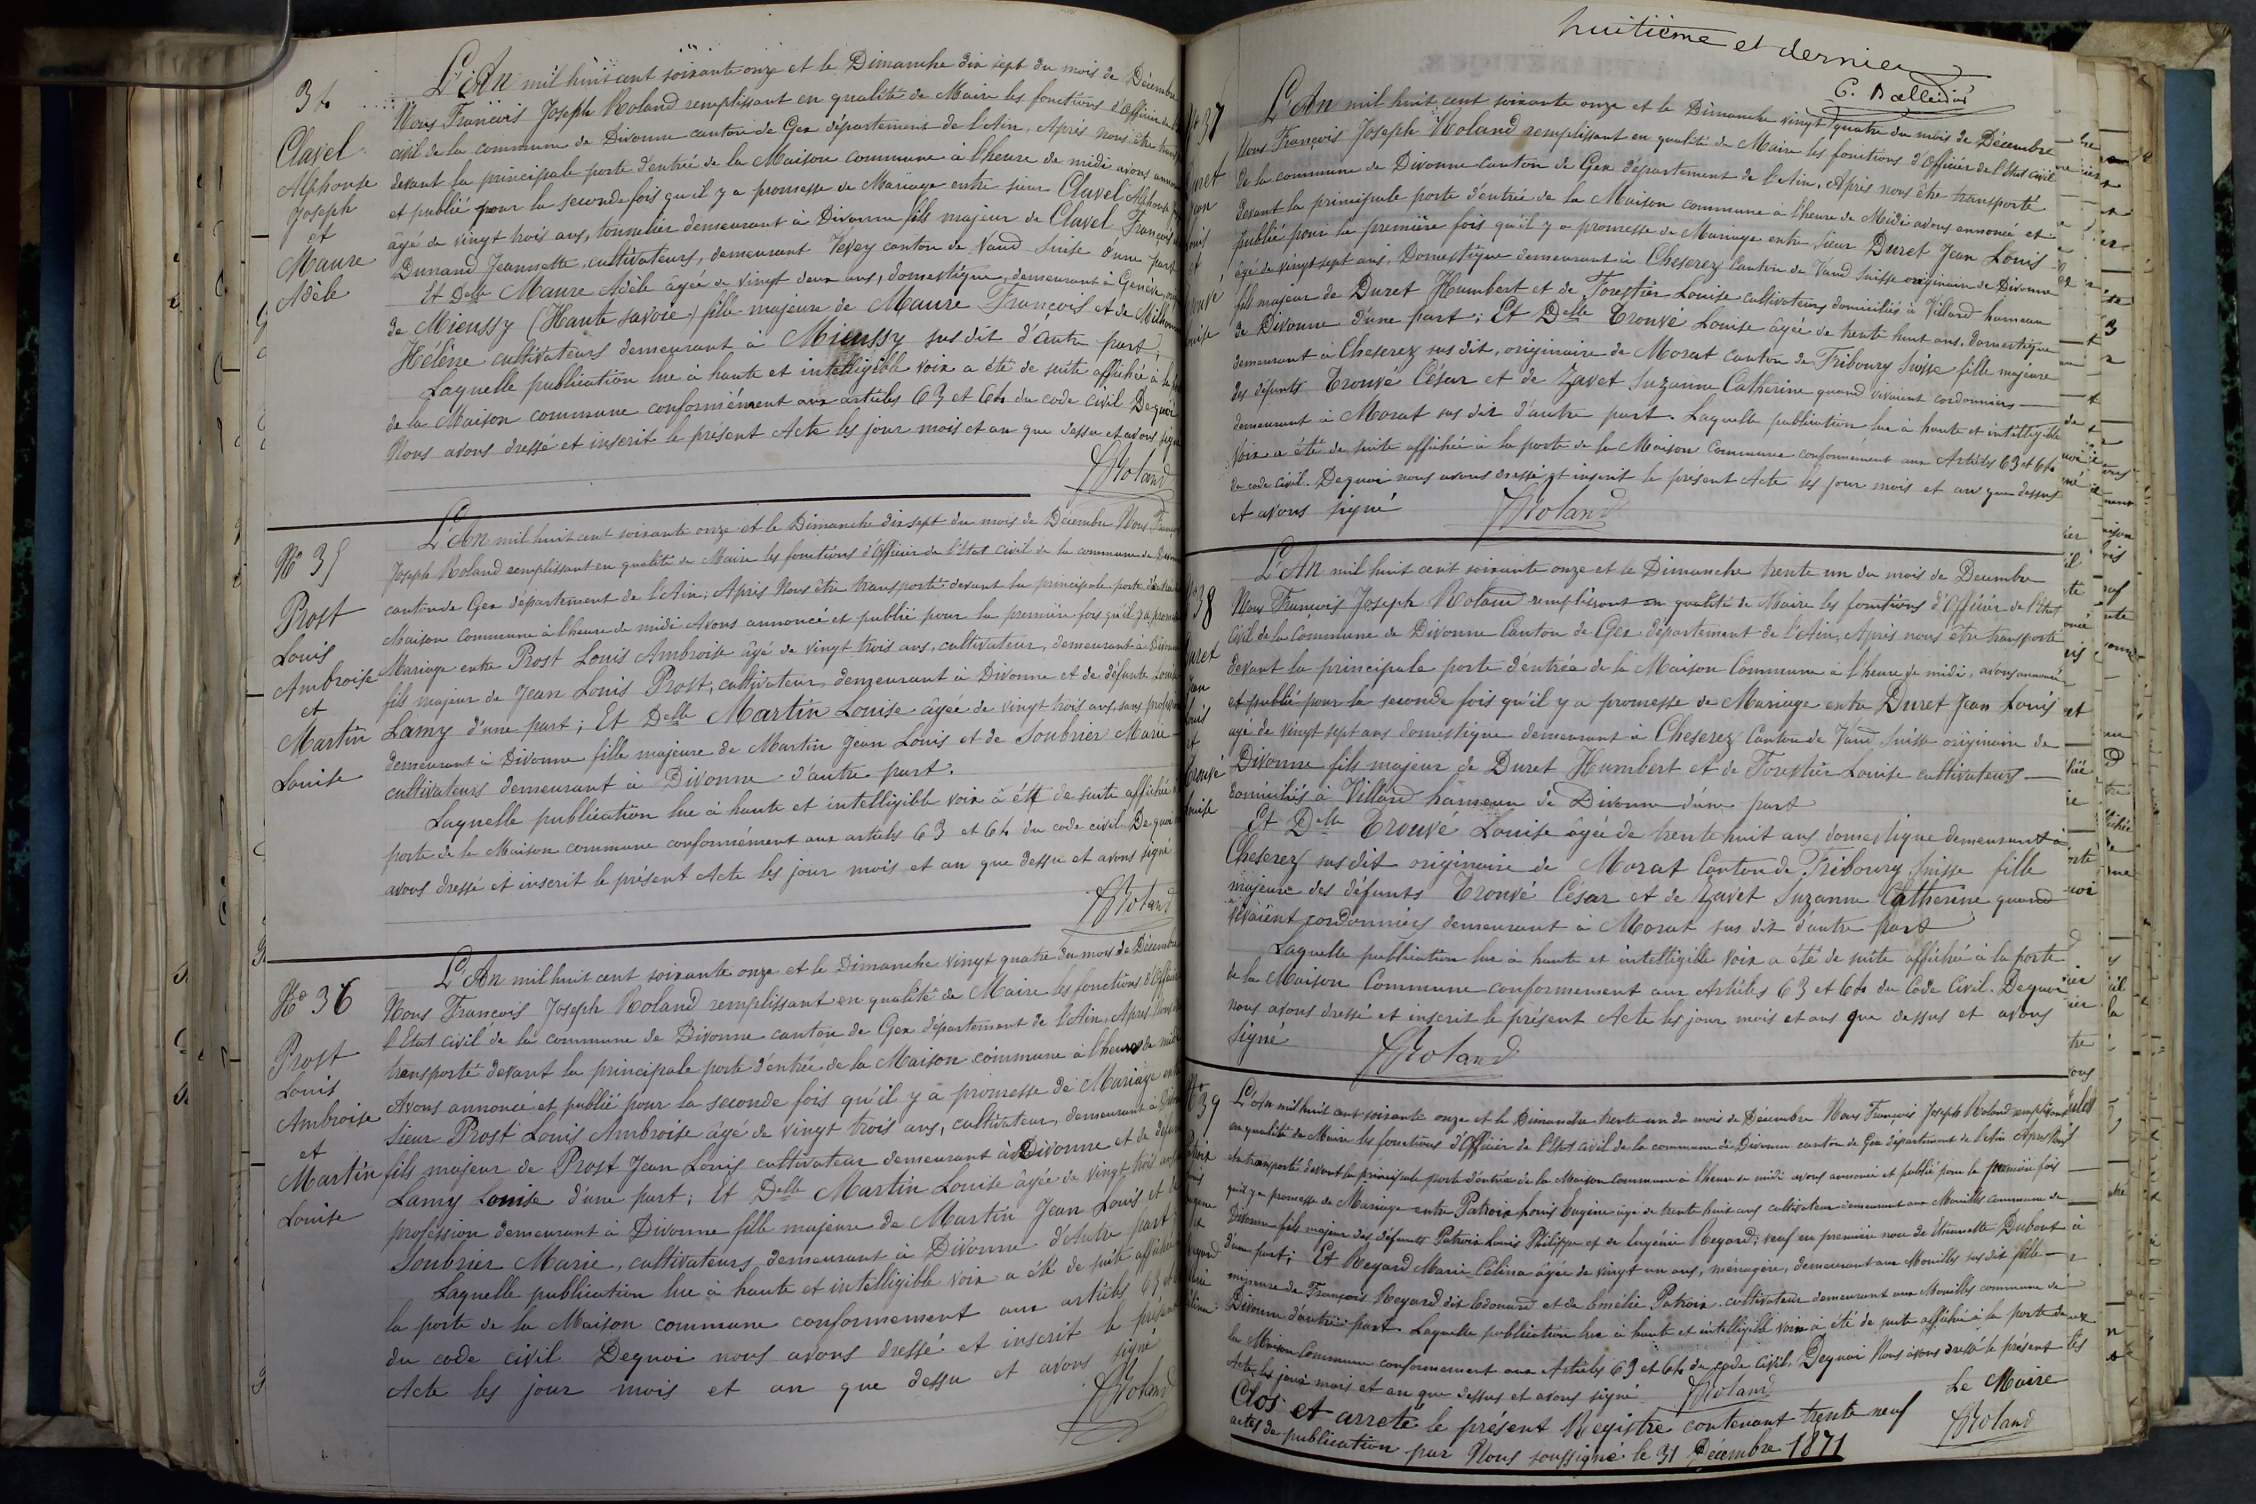 34
Clavel
Alphonse
Joseph
et
Maure
Adèle
L'An mil huit cent soixante onze et le Dimanche dix sept du mois de Décembre
Nous François Joseph Roland remplissant en qualité de Maire les fonctions d'Officier de
civil de la commune de Divonne canton de Gex département de l'Ain, Après nous être
devant la principale porte d'entrée de la Maison commune à l'heure de midi avons
et publié pour la seconde fois qu'il y a promesse de Mariage entre sieur Clavel Alphonse
âgé de vingt trois ans, tonnelier demeurant à Divonne fils majeur de Clavel François
Dunand Jeannette, cultivateurs, demeurant Vevey canton de Vaud Suisse d'une part
Et Delle Maure Adèle âgée de vingt deux ans, domestique, demeurant à Genève,
de Mieussy (Haute Savoie) fille majeure de Maure François et de
Hélène cultivateurs demeurant à Mieussy sus dit d'autre part,
Laquelle publication lue à haute et intelligible voix a été de suite affichée à la
de la Maison commune conformément aux articles 63 et 64 du code civil De quoi
Nous avons dressé et inscrit le présent Acte les jour mois et an que dessu et avons signé
JRoland
No 35
Prost
Louis
Ambroise
et
Martin
Louise
L'An mil huit cent soixante onze et le Dimanche dix sept du mois de Décembre Nous
Joseph Roland remplissant en qualité de Maire les fonctions d'Officier de l'Etat civil de la commune de
canton de Gex département de l'Ain; Après Nous être transporté devant la principale porte d'entrée
Maison commune à l'heure de midi Avons annoncé et publié pour la première fois qu'il y a
Mariage entre Prost Louis Ambroise âgé de vingt trois ans, cultivateur, demeurant à
fils majeur de Jean Louis Prost, cultivateur demeurant à Divonne et de défunte Louise
Lamy d'une part; Et Delle Martin Louise âgée de vingt trois ans, sans
demeurant à Divonne fille majeure de Martin Jean Louis et de Soubrier Marie
cultivateurs demeurant à Divonne d'autre part.
Laquelle publication lue à haute et intelligible voix à été de suite affichée
porte de la Maison commune conformément aux articles 63 et 64 du code civil De quoi
avons dressé et inscrit le présent Acte les jour mois et an que dessu et avons signé
JRoland
No 36
Prost
Louis
Ambroise
et
Martin
Louise
L'An mil huit cent soixante onze et le Dimanche vingt quatre du mois de Décembre
Nous François Joseph Roland remplissant en qualité de Maire les fonctions d'Officier
l'Etat civil de la commune de Divonne canton de Gex département de l'Ain, Après
transporté devant la principale porte d'entrée de la Maison commune à l'heure de midi
Avons annoncé et publié pour la seconde fois qu'il y a promesse de Mariage
Sieur Prost Louis Ambroise âgé de vingt trois ans, cultivateur, demeurant à
fils majeur de Prost Jean Louis cultivateur demeurant à Divonne et de
Lamy Louise d'une part; Et Delle Martin Louise âgée de vingt trois
profession demeurant à Divonne fille majeure de Martin Jean Louis et
Soubrier Marie, cultivateurs demeurant à Divonne d'Autre part
Laquelle publication lue à haute et intelligible voix a été de suite affichée
la porte de la Maison commune conformement aux articles 63
du code civil Dequoi nous avons dressé et inscrit le
Acte les jour mois et an que dessu et avons signé
JRoland
huitième et dernier
37
Louis
et
L'An mil huit cent soixante onze et le Dimanche vingt quatre du mois de Décembre
Nous François Joseph Roland remplissant en qualité de Maire les fonctions d'Officier de l'Etat civil
de la commune de Divonne canton de Gex département de l'Ain, Après nous être transporté
devant la principale porte d'entrée de la Maison commune à l'heure de Midi avons annoncé et
publié pour la première fois qu'il y a promesse de Mariage entre sieur Duret Jean Louis
âgé de vingt sept ans, Domestique demeurant à Cheserex Canton de Vaud Suisse originaire de Divonne
fils majeur de Duret Humbert et de Forestier Louise cultivateurs domiciliés à Villard hameau
de Divonne d'une part; Et Delle Trouvé Louise âgée de trente huit ans, domestique
demeurant à Cheserex sus dit, originaire de Morat canton de Fribourg Suisse fille majeure
des défunts Trouvé César et de Zavet Suzanne Catherine quand vivaient cordonniers
demeurant à Morat sus dit d'autre part. Laquelle publication lue à haute et intelligible
voix a été de suite affichée à la porte de la Maison Commune conformément aux Articles 63 et 64
du code civil. Dequoi nous avons dressé et inscrit le présent Acte les jour mois et an que dessus
et avons signé JRoland
38
Duret
Jean
Louis
et
Trouvé
Louise
L'An mil huit cent soixante onze et le Dimanche trente un du mois de Décembre
Nous François Joseph Roland remplissant en qualité de Maire les fonctions d'Officier de l'Etat
Civil de la Commune de Divonne Canton de Gex département de l'Ain, Après nous être transporté
devant la principale porte d'entrée de la Maison Commune à l'heure de midi, avons annoncé
et publié pour la seconde fois qu'il y a promesse de Mariage entre Duret Jean Louis
âgé de vingt sept ans domestique demeurant à Cheserex Canton de Vaud Suisse originaire de
Divonne fils majeur de Duret Humbert et de Forestier Louise cultivateurs
domiciliés à Villard hameau de Divonne d'une part
Et Delle Trouvé Louise âgée de trente huit ans domestique demeurant à
Cheserex sus dit originaire de Morat Canton de Fribourg Suisse fille
majeure des défunts Trouvé César et de Zavet Suzanne Catherine quand
vivaient cordonniers demeurant à Morat sus dit d'autre part
Laquelle publication lue à haute et intelligible voix a été de suite affichée à la porte
de la Maison Commune conformement aux Articles 63 et 64 du Code Civil. Dequoi
nous avons dressé et inscrit le présent Acte les jour mois et ans que dessus et avons
signé JRoland
39
L'An mil huit cent soixante onze et le Dimanche trente un du mois de Décembre Nous François Joseph Roland remplissant
en qualité de Maire les fonctions d'Officier de l'Etat civil de la commune de Divonne canton de Gex département de l'Ain Après Nous
être transporté devant la principale porte d'entrée de la Maison Commune à l'heure de midi avons annoncé et publié pour la première fois
qu'il y a promesse de Mariage entre Patroix Louis Eugène âgé de trente huit ans cultivateur demeurant aux Mouilles commune de
Divonne fils majeur des défunts Patroix Louis Philippe et de Eugénie Regard; veuf en première noce de Etiennette Dubout
d'une part; Et Regard Marie Célina âgée de vingt un ans, ménagère, demeurant aux Mouilles sus dit fille
majeure de François Regard dit Edouard et de Emélie Patroix cultivateur demeurant aux Mouilles commune de
Divonne d'autre part. Laquelle publication lue à haute et intelligible voix à été de suite affichée à la porte de
la Maison Commune conformement aux Articles 63 et 64 du code civil. Dequoi Nous avons dressé le présent
Acte les jour mois et an que dessus et avons signé JRoland
Clos et arreté le présent Registre contenant trente neuf
actes de publication par Nous soussigné le 31 Décembre 1871
Le Maire
JRoland